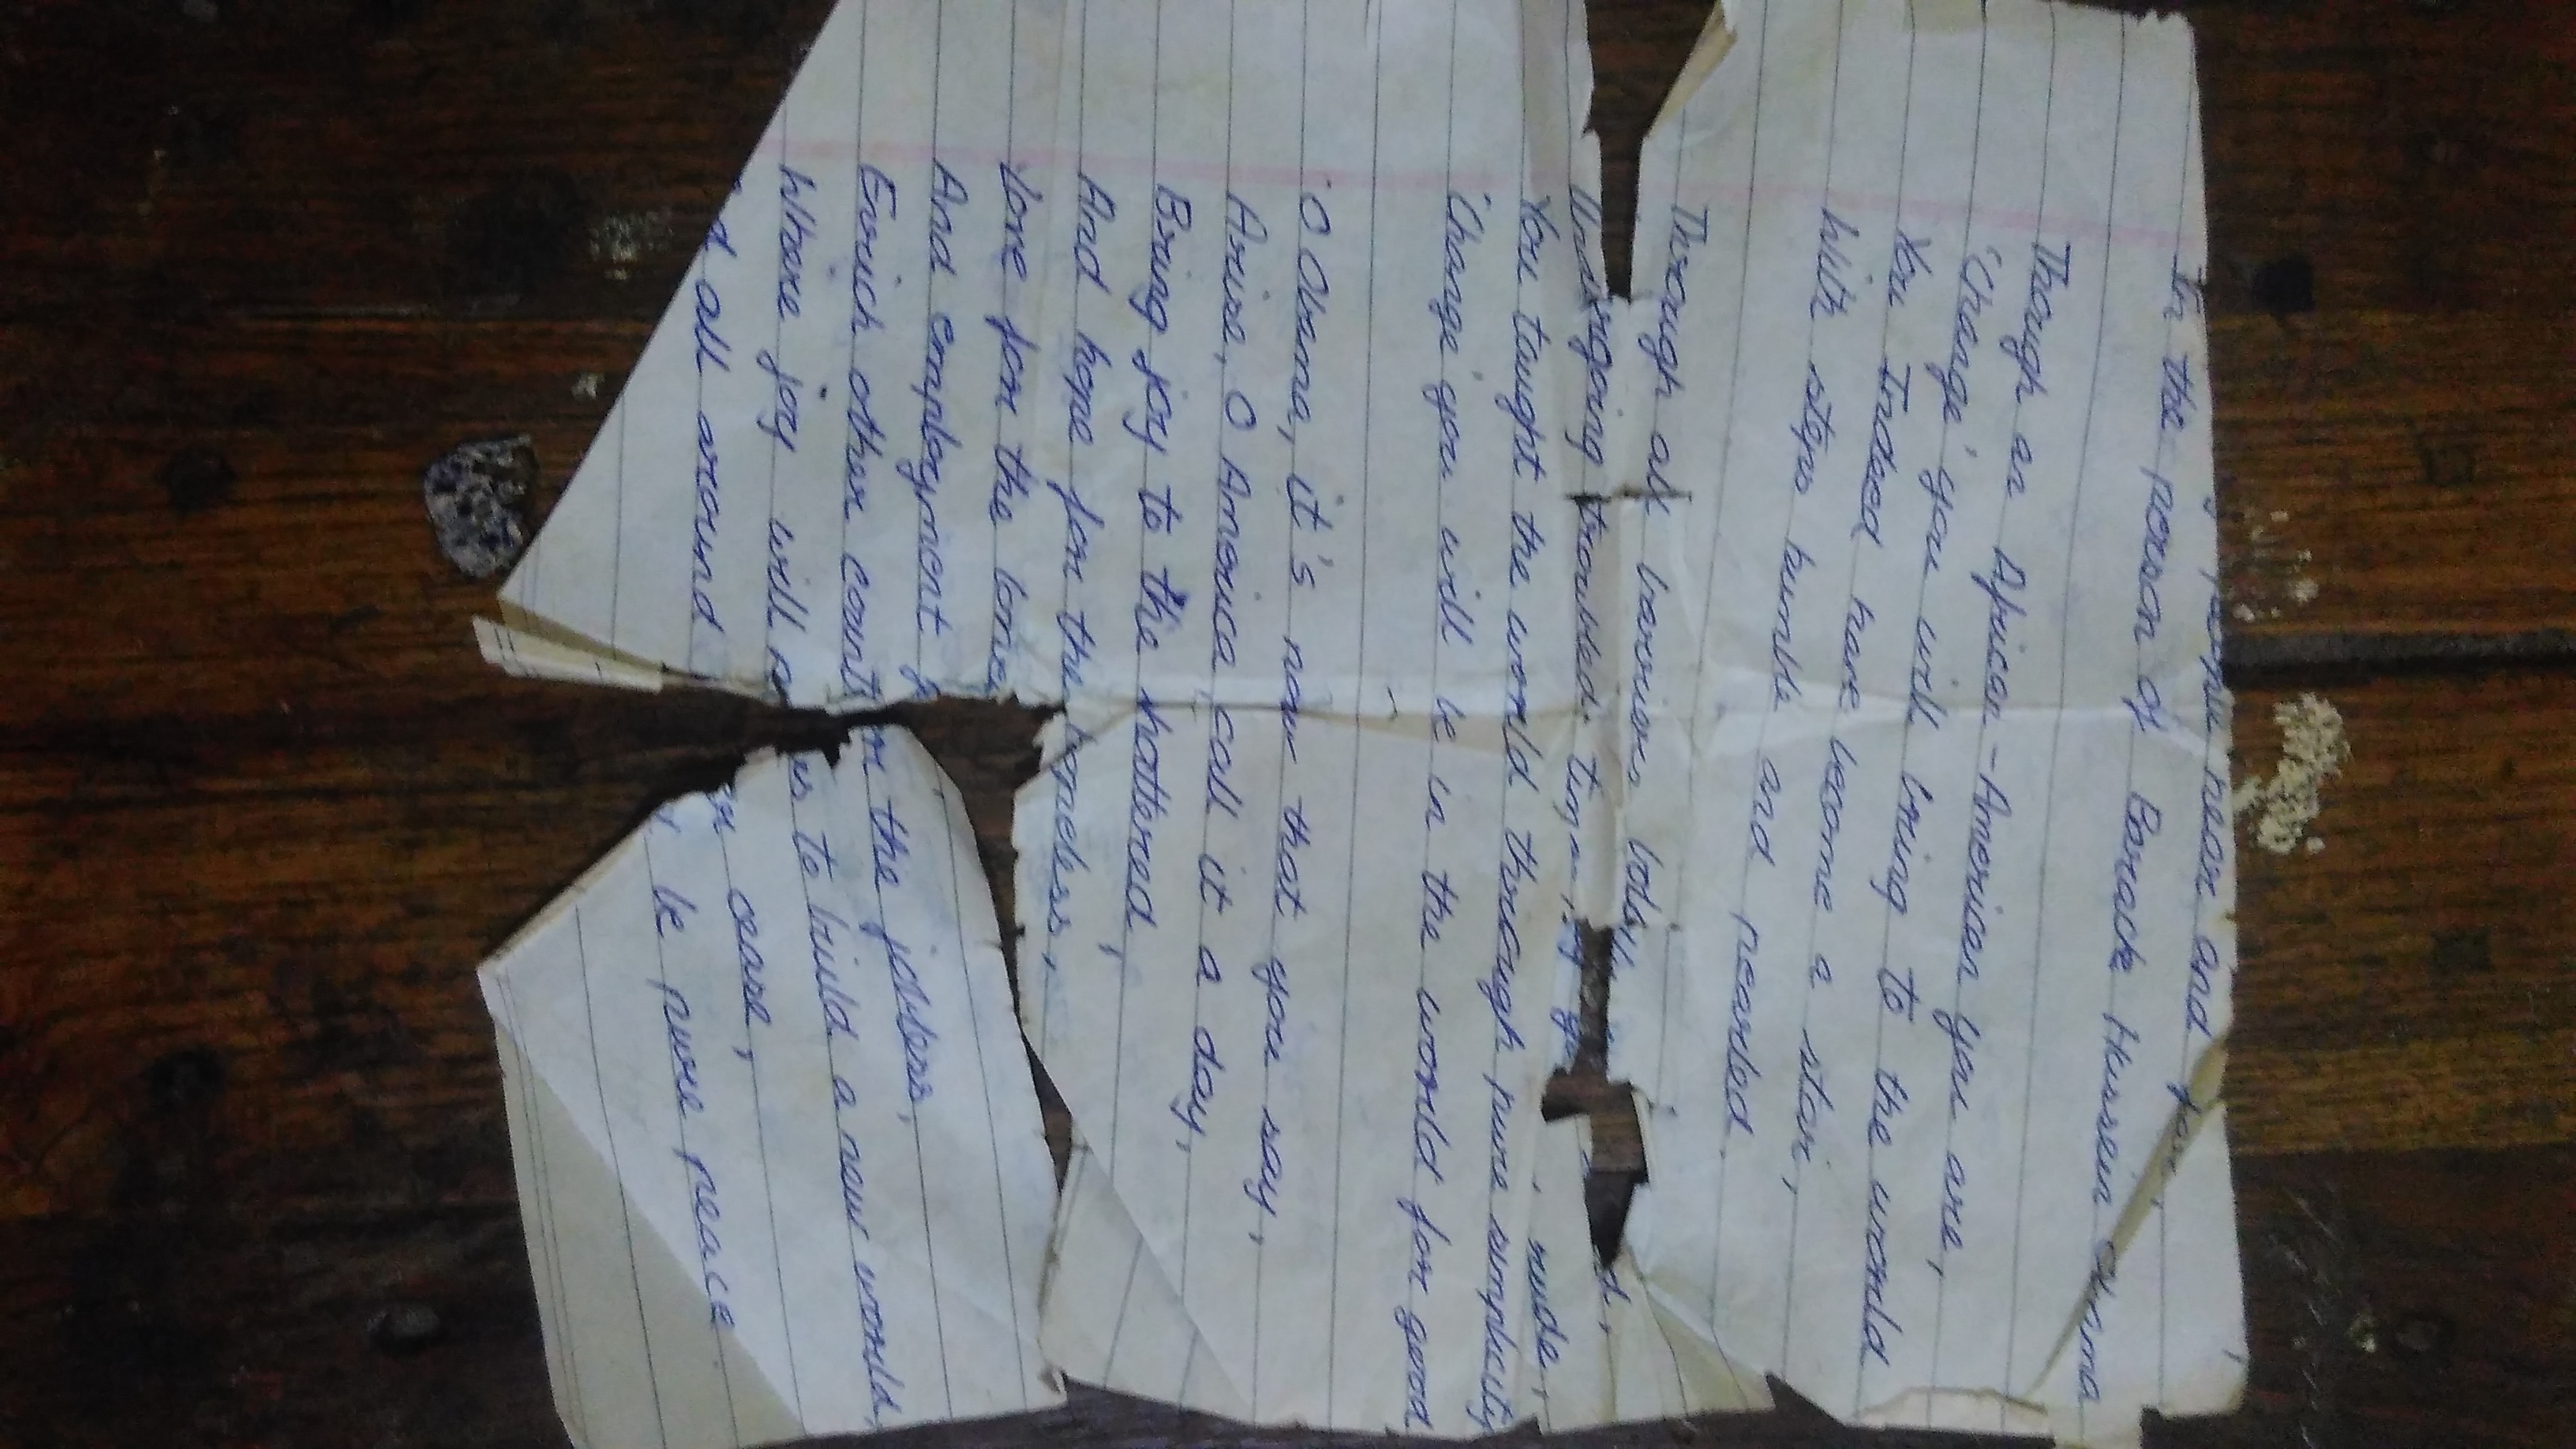 people near and far,
In the person of Barack Hussein Obama
Though an African-American you are,
'Change' you will bring to the world
You Indeed have become a star,
With steps humble and pearled.
Through all barriers boldly
Undergoing troubled, rude,
You taught the world through pure simplicity
'Change' you will be in the world for good
'O Obama, it's now that you say,
Arise, O America call it a day,
Bring joy to the shattered,
And hope for the hopeless,
Love for the
And employment for the jobless,
Enrich other countries to build a new world,
Whose joy will care,
all around be pure peace.